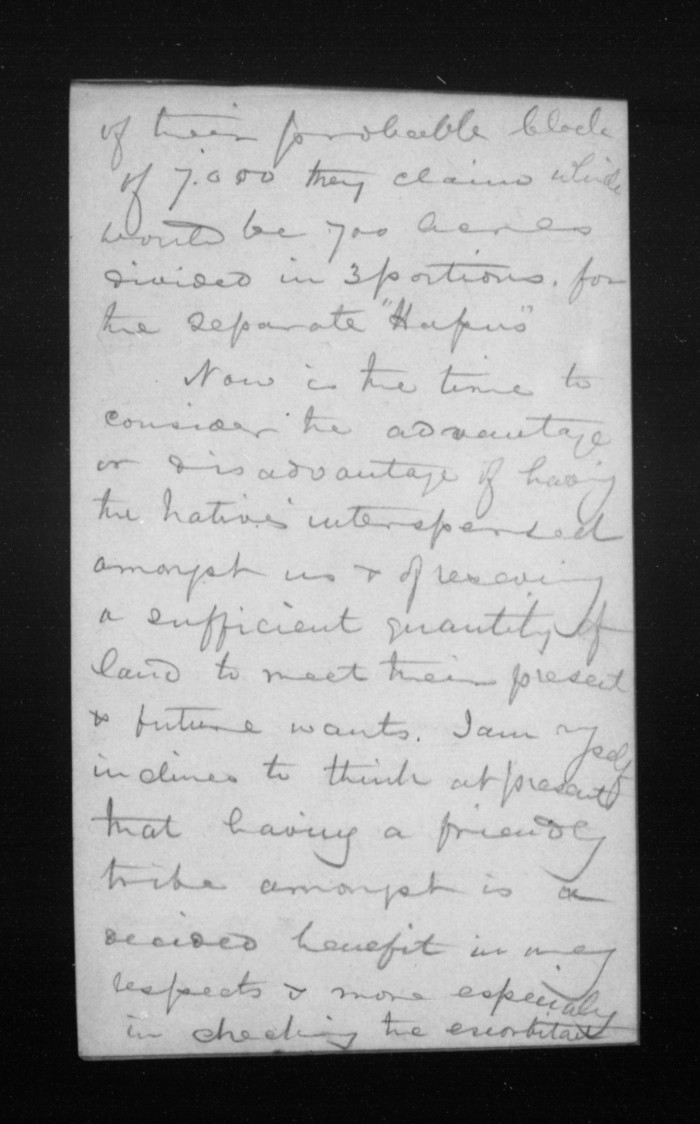 of their probable block
of 7.000 they claim which
would be 700 acres
divided in 3 portions. for
the separate "Hapus"
Now is the time to
consider the advantage
or disadvantage of having
the Natives interspersed
amongst us & of reserving
a sufficient quantity of
land to meet their present
& future wants. I am myself
inclined to think at present
that having a friendly
tribe amongst is a
decided benefit in many
respects & more especialy
in checking the exorbitant